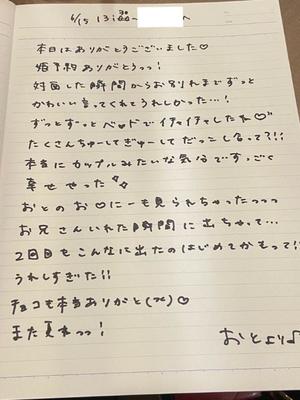 6/15 13:30~ へ
本日はありがとうございました♡
姫予約ありがとうっっ!
対面した瞬間からお別れまでずっと
かわいい言ってくれてうれしかった…!
ずっとずっとベッドでイチャイチャしたね♡
たくさんちゅーしてぎゅーしてだっこし合って?!!
本当にカップルみたいな気分ですっごく
幸せやった
おとのお♡にーも見られちゃったっっっ
お兄さんいれた瞬間に出ちゃって…
2回目もこんなに出たのはじめてかもって!!
うれしすぎた!!
チョコも本当ありがと(x)♡
また見れっっ!
おとより♪